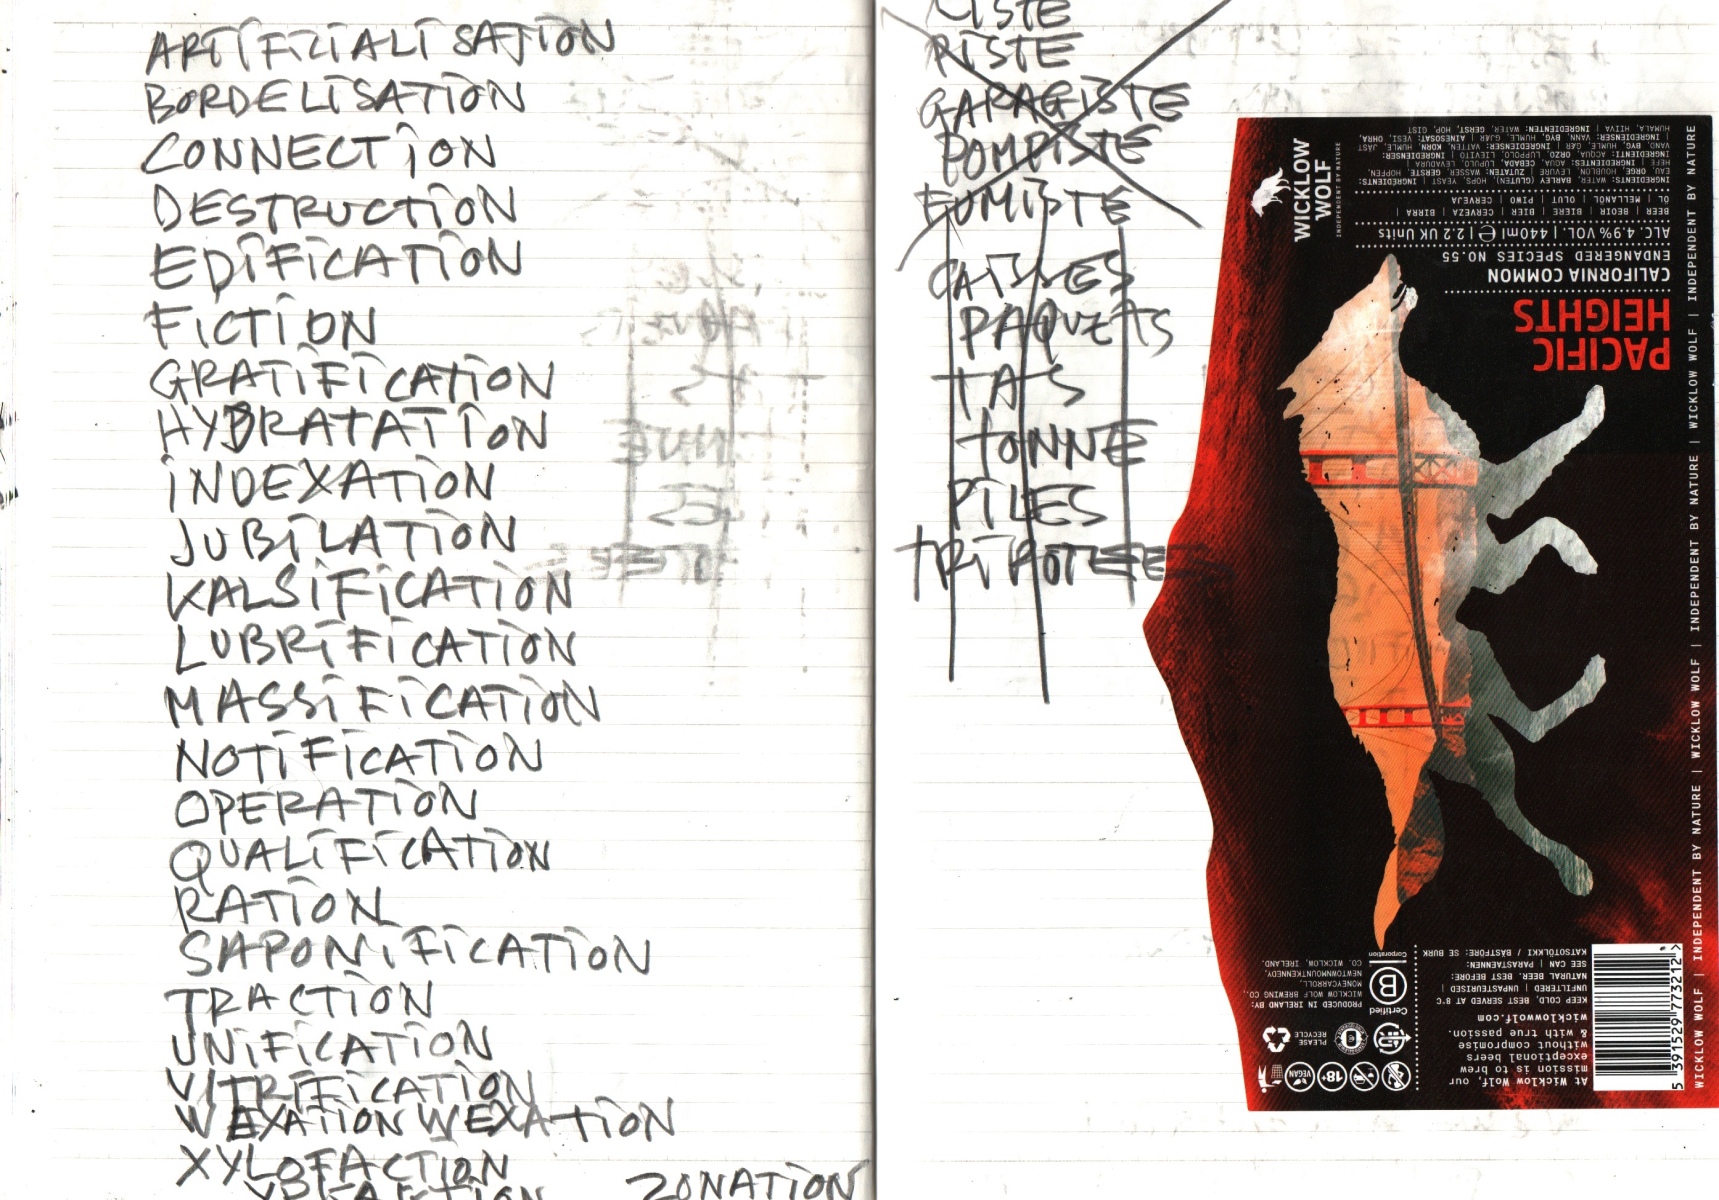 ARTIFICIALISATION
BORDELISATION
CONNECTION
DESTRUCTION
EDIFICATION
FICTION
GRATIFICATION
HYDRATATION
INDEXATION
JUBILATION
KALSIFICATION
LUBRIFICATION
MASSIFICATION
NOTIFICATION
OPERATION
QUALIFICATION
RATION
SAPONIFICATION
TRACTION
UNIFICATION
VITRIFICATION
WEXATION WEXATION
XYLOFACTION
ZONATION
LISTE
PISTE
GARAGISTE
POMPISTE
FUMISTE
CAISSES
PAQUETS
TATS
TONNE
PILES
WICKLOW
WOLF
INDEPENDENT BY NATURE
INGREDIENTS: WATER, BARLEY (GLUTEN), HOPS, YEAST | INGREDIENTS:
EAU, ORGE, HOUBLON, LEVURE | ZUTATEN: WASSER, GERSTE, HOPFEN,
HEFE | INGREDIENTES: AGUA, CEBADA, LUPULO, LEVADURA |
INGREDIENTI: ACQUA, ORZO, LUPPOLO, LIEVITO | INGREDIENSER:
VAND, BYG, HUMLE, GÆR | INGREDIENSER: VATTEN, KORN, HUMLE, JÄST
| INGREDIENSER: VANN, BYG, HUMLE, GJÆR | AINESOSAT: VESI, OHRA,
HUMALA, HIIVA | INGREDIENTEN: WATER, GERST, HOP, GIST
BEER | BEOIR | BIERE | BIER | CERVEZA | BIRRA |
ÖL MELLANÖL | OLUT | PIWO | CERVEJA
ALC. 4.9% VOL. | 440ml e | 2.2 UK Units
ENDANGERED SPECIES NO.55
CALIFORNIA COMMON
PACIFIC
HEIGHTS
WICKLOW WOLF | INDEPENDENT BY NATURE | WICKLOW WOLF | INDEPENDENT BY NATURE | WICKLOW WOLF | INDEPENDENT BY NATURE | WICKLOW WOLF | INDEPENDENT BY NATURE
At Wicklow Wolf, our
mission is to brew
exceptional beers
without compromise
& with true passion.
wicklowwolf.com
KEEP COLD, BEST SERVED AT 8°C
UNFILTERED | UNPASTEURISED |
NATURAL BEER. BEST BEFORE:
SEE CAN | PARASTAENNEN:
KATSO TÖLKKI / BÄSTFÖRE: SE BURK
Certified
B
Corporation
PRODUCED IN IRELAND BY:
WICKLOW WOLF BREWING CO.,
MONEYCARROLL,
NEWTOWNMOUNTKENNEDY,
CO. WICKLOW, IRELAND.
PLEASE
RECYCLE
VEGAN
18+
5 391529 773212 >